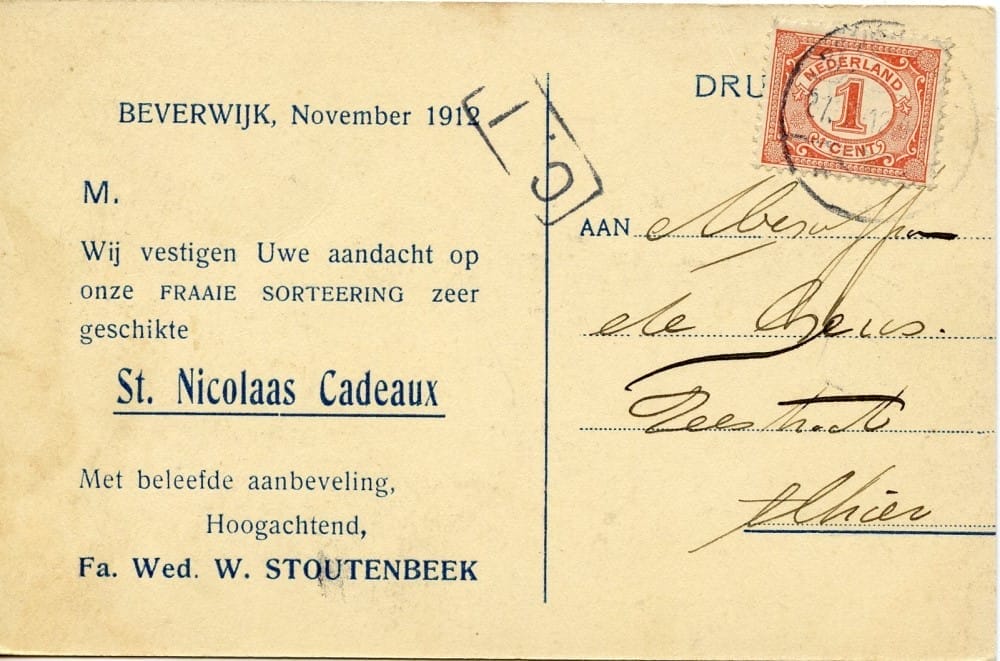 BEVERWIJK, November 1912
M.
Wij vestigen Uwe aandacht op
onze FRAAIE SORTEERING zeer
geschikte
St. Nicolaas Cadeaux
Met beleefde aanbeveling,
Hoogachtend,
Fa. Wed. W. STOUTENBEEK
DRU
NEDERLAND
1
1 CENT
AAN
de Geus.
Zeestraat
Alhier